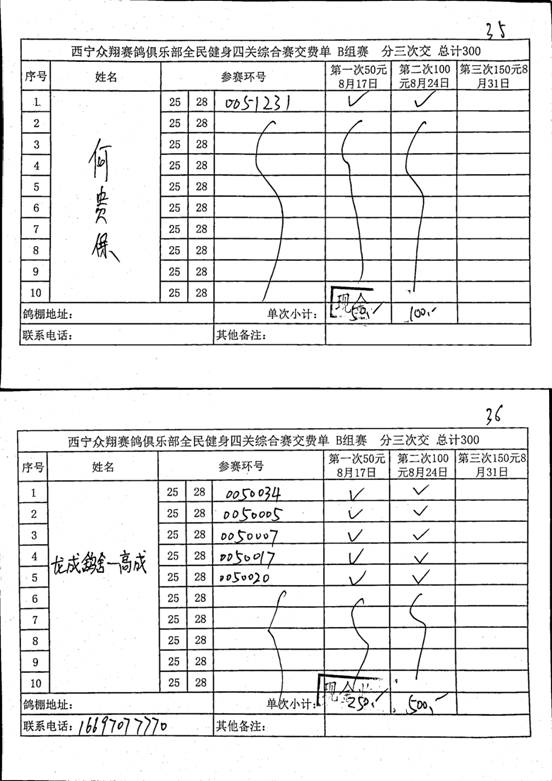 35
西宁众翔赛鸽俱乐部全民健身四关综合赛交费单 B组赛 分三次交 总计300
序号 姓名 参赛环号 第一次50元8月17日 第二次100元8月24日 第三次150元8月31日
1 25 28 0051231 ✓ ✓
2 25 28
3 25 28
4 25 28
5 25 28
6 25 28
7 25 28
8 25 28
9 25 28
10 25 28
何贵保
鸽棚地址： 单次小计： 现金 50 100
联系电话： 其他备注：
36
西宁众翔赛鸽俱乐部全民健身四关综合赛交费单 B组赛 分三次交 总计300
序号 姓名 参赛环号 第一次50元8月17日 第二次100元8月24日 第三次150元8月31日
1 25 28 0050034 ✓ ✓
2 25 28 0050005 ✓ ✓
3 25 28 0050007 ✓ ✓
4 25 28 0050017 ✓ ✓
5 25 28 0050020 ✓ ✓
6 25 28
7 25 28
8 25 28
9 25 28
10 25 28
龙成鸽舍一高成
鸽棚地址： 单次小计： 现金 250 500
联系电话：16697077770 其他备注：